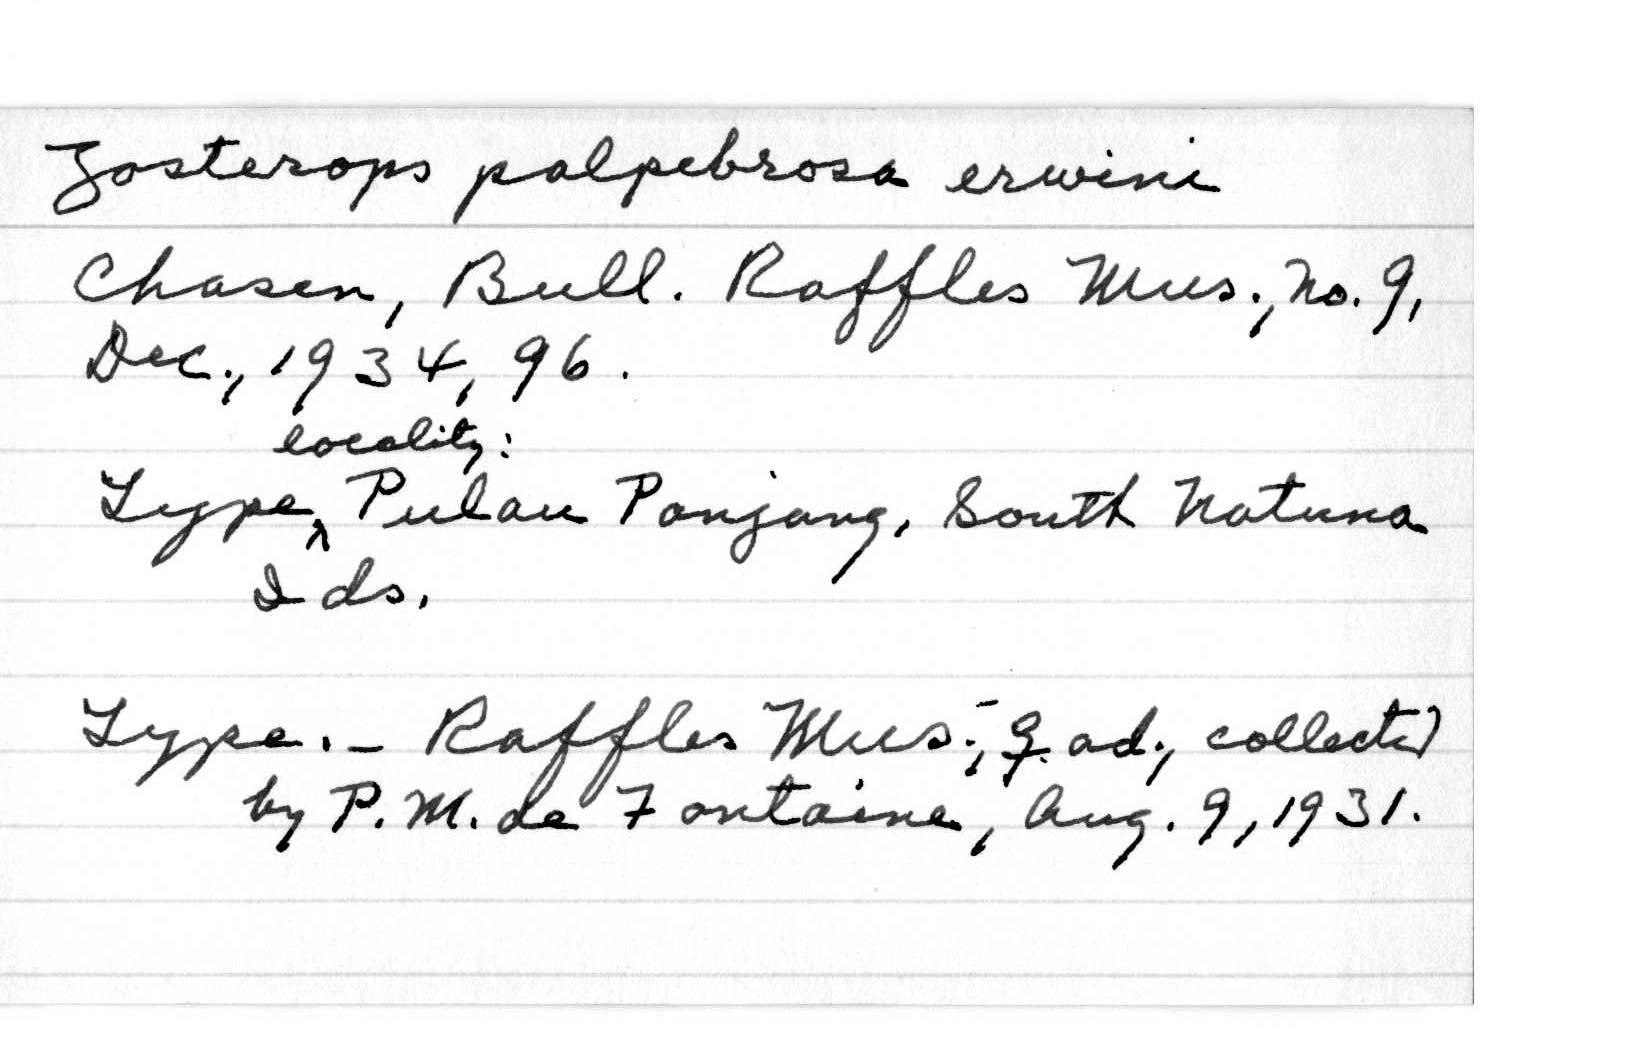 Zosterops palpebrosa erwini
Chasen, Bull. Raffles Mus., No. 9,
Dec., 1934, 96.
locality:
Type ^ Pulau Panjang, South Natuna
Ids.
Type. – Raffles Mus.; ♀ ad., collected
by P. M. de Fontaine, Aug. 9, 1931.